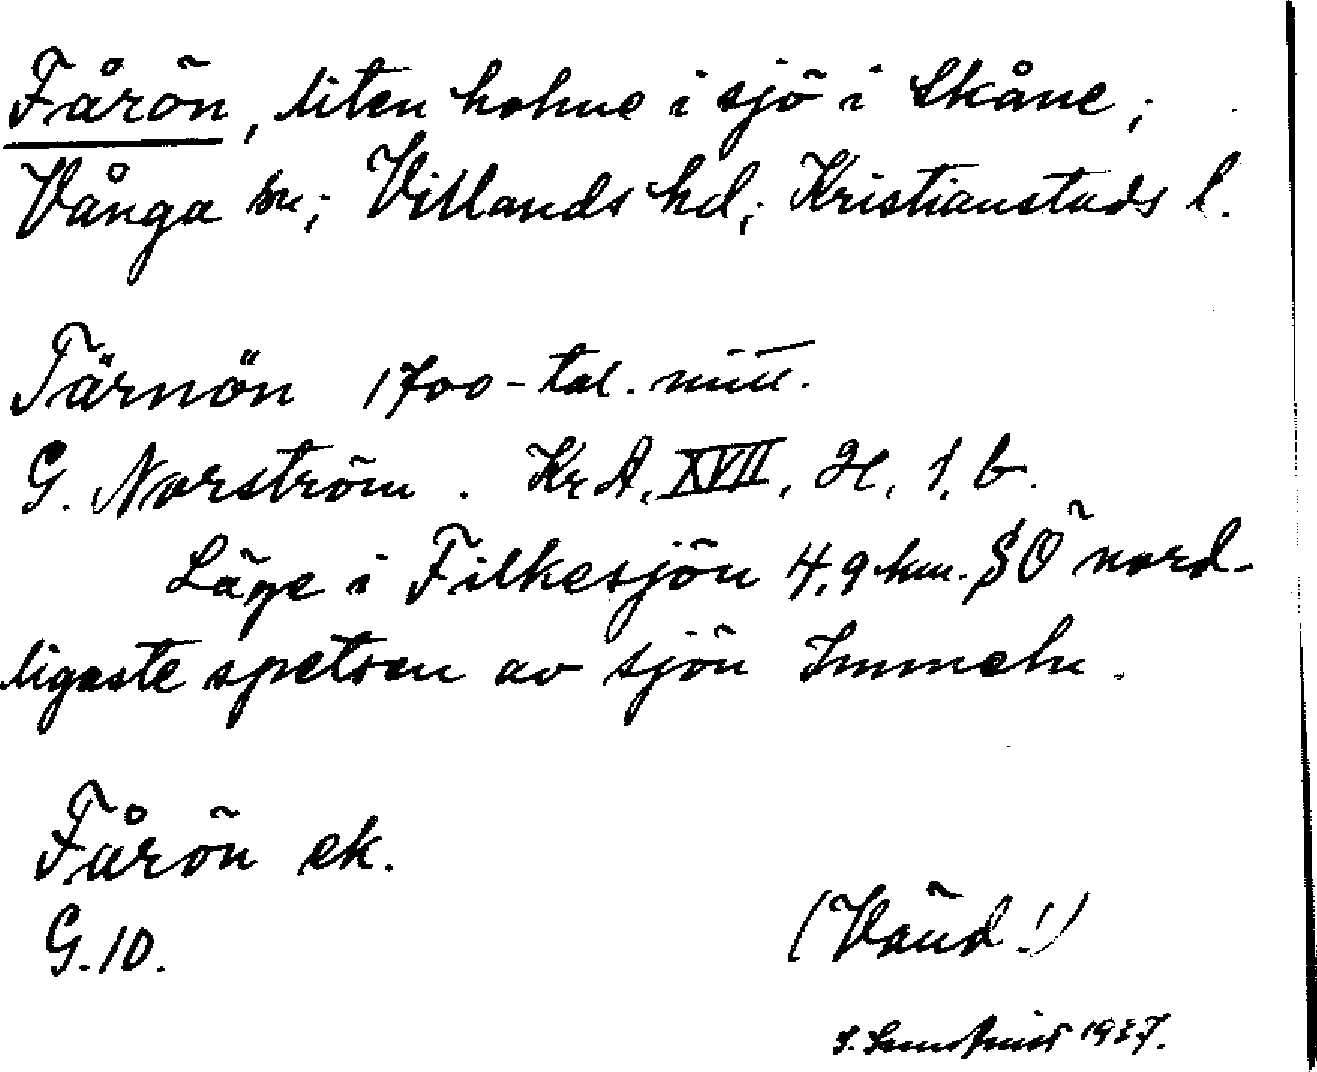 Fårön, liten holme i sjö i Skåne;
Vånga sn; Villands hd; Kristianstads l.
Tärnön 1700-tal. mitt.
G. Norström. Kr A, XVII, H, 1, b.
Läge i Filkesjön 4,9 km. SÖ nord-
ligaste spetsen av sjön Immeln.
Fårön ek.
G.10.
(Vänd!)
1937.